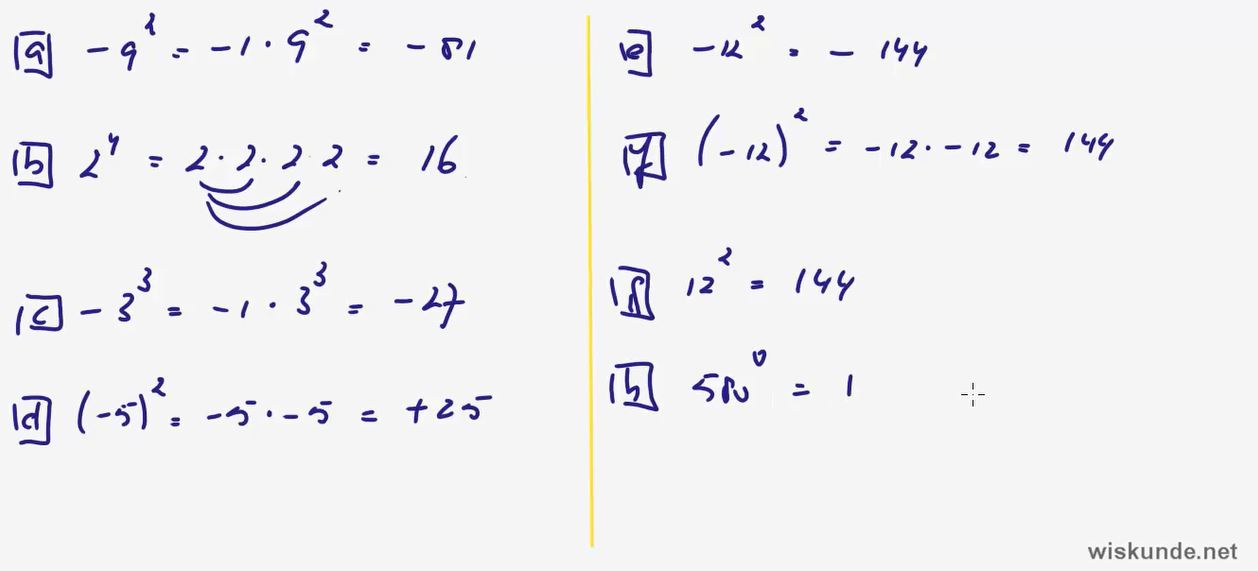 a -9² = -1 · 9² = -81
b 2⁴ = 2 · 2 · 2 · 2 = 16
c -3³ = -1 · 3³ = -27
d (-5)² = -5 · -5 = +25
e -12² = -144
f (-12)² = -12 · -12 = 144
g 12² = 144
h 500⁰ = 1
wiskunde.net